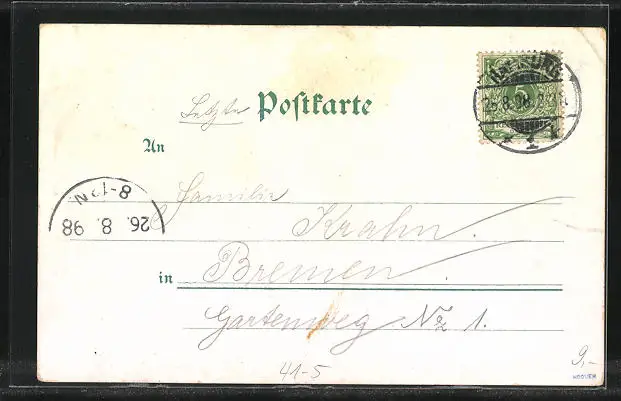 Letzte Postkarte
HAMBURG
5
25.8.98
1
An
Familie
Krahn.
8-12 N.
26. 8. 98
in Bremen
Gartenweg No 1.
41-5
9,-